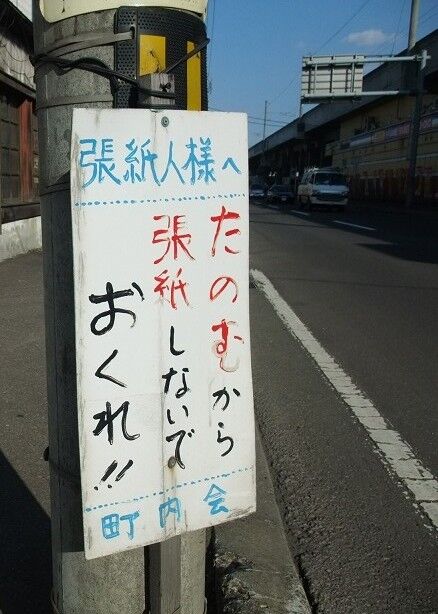 張紙人様へ
たのむから
張紙しないで
おくれ!!
町内会